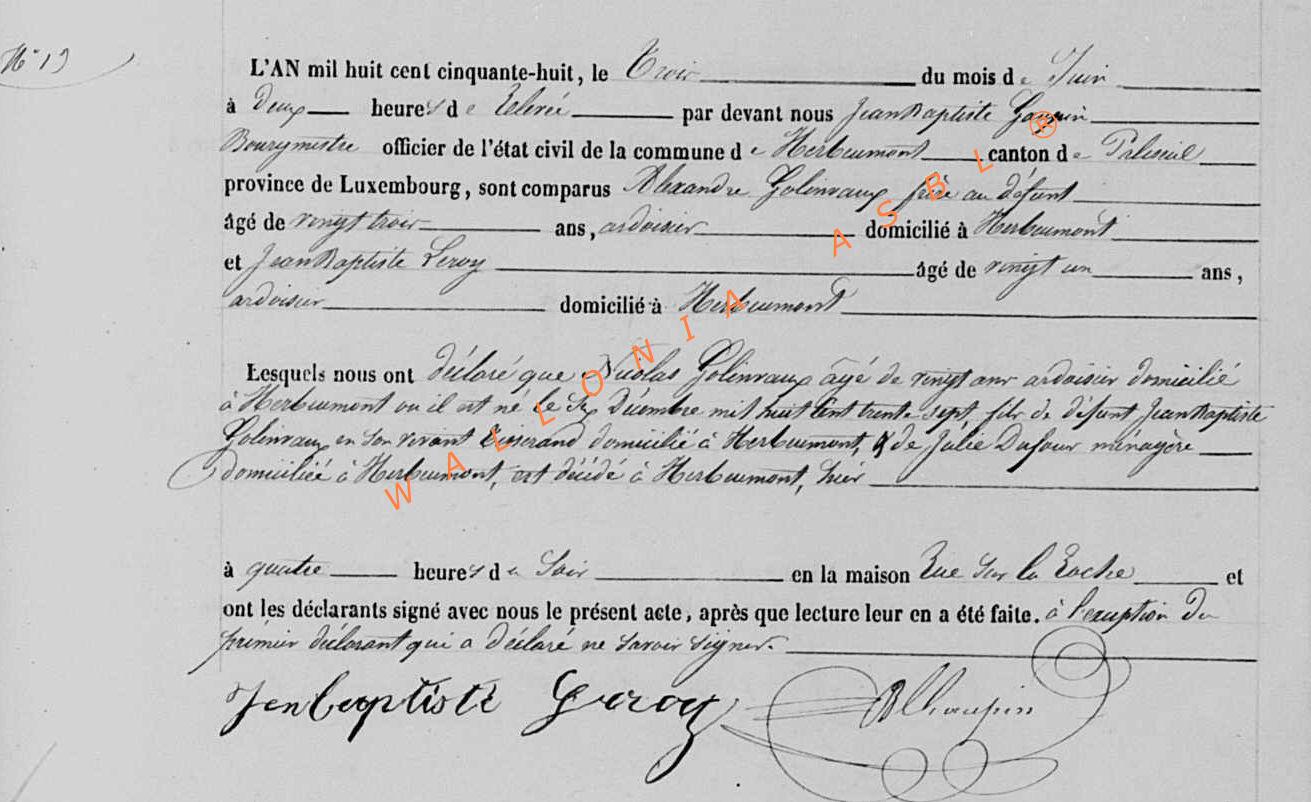 N° 19
L'AN mil huit cent cinquante-huit, le Trois du mois de Juin
à Deux heures de Relevée par devant nous Jean Baptiste
Bourgmestre officier de l'état civil de la commune de Herbeumont canton de Paliseul
province de Luxembourg, sont comparus Alexandre Golinvaux frère au défunt
âgé de vingt trois ans, ardoisier domicilié à Herbeumont
et Jean Baptiste Leroy âgé de vingt un ans,
ardoisier domicilié à Herbeumont
Lesquels nous ont déclaré que Nicolas Golinvaux âgé de vingt ans ardoisier domicilié
à Herbeumont où il est né le Six Décembre mil huit Cent trente-sept, fils de défunt Jean Baptiste
Golinvaux en son vivant tisserand domicilié à Herbeumont, & de Julie Dufour ménagère
domiciliée à Herbeumont, est décédé à Herbeumont, hier
à quatre heures du Soir en la maison Rue Sur la Roche et
ont les déclarants signé avec nous le présent acte, après que lecture leur en a été faite. à l'exception du
premier déclarant qui a déclaré ne savoir signer.
WALLONIA ASBL ®